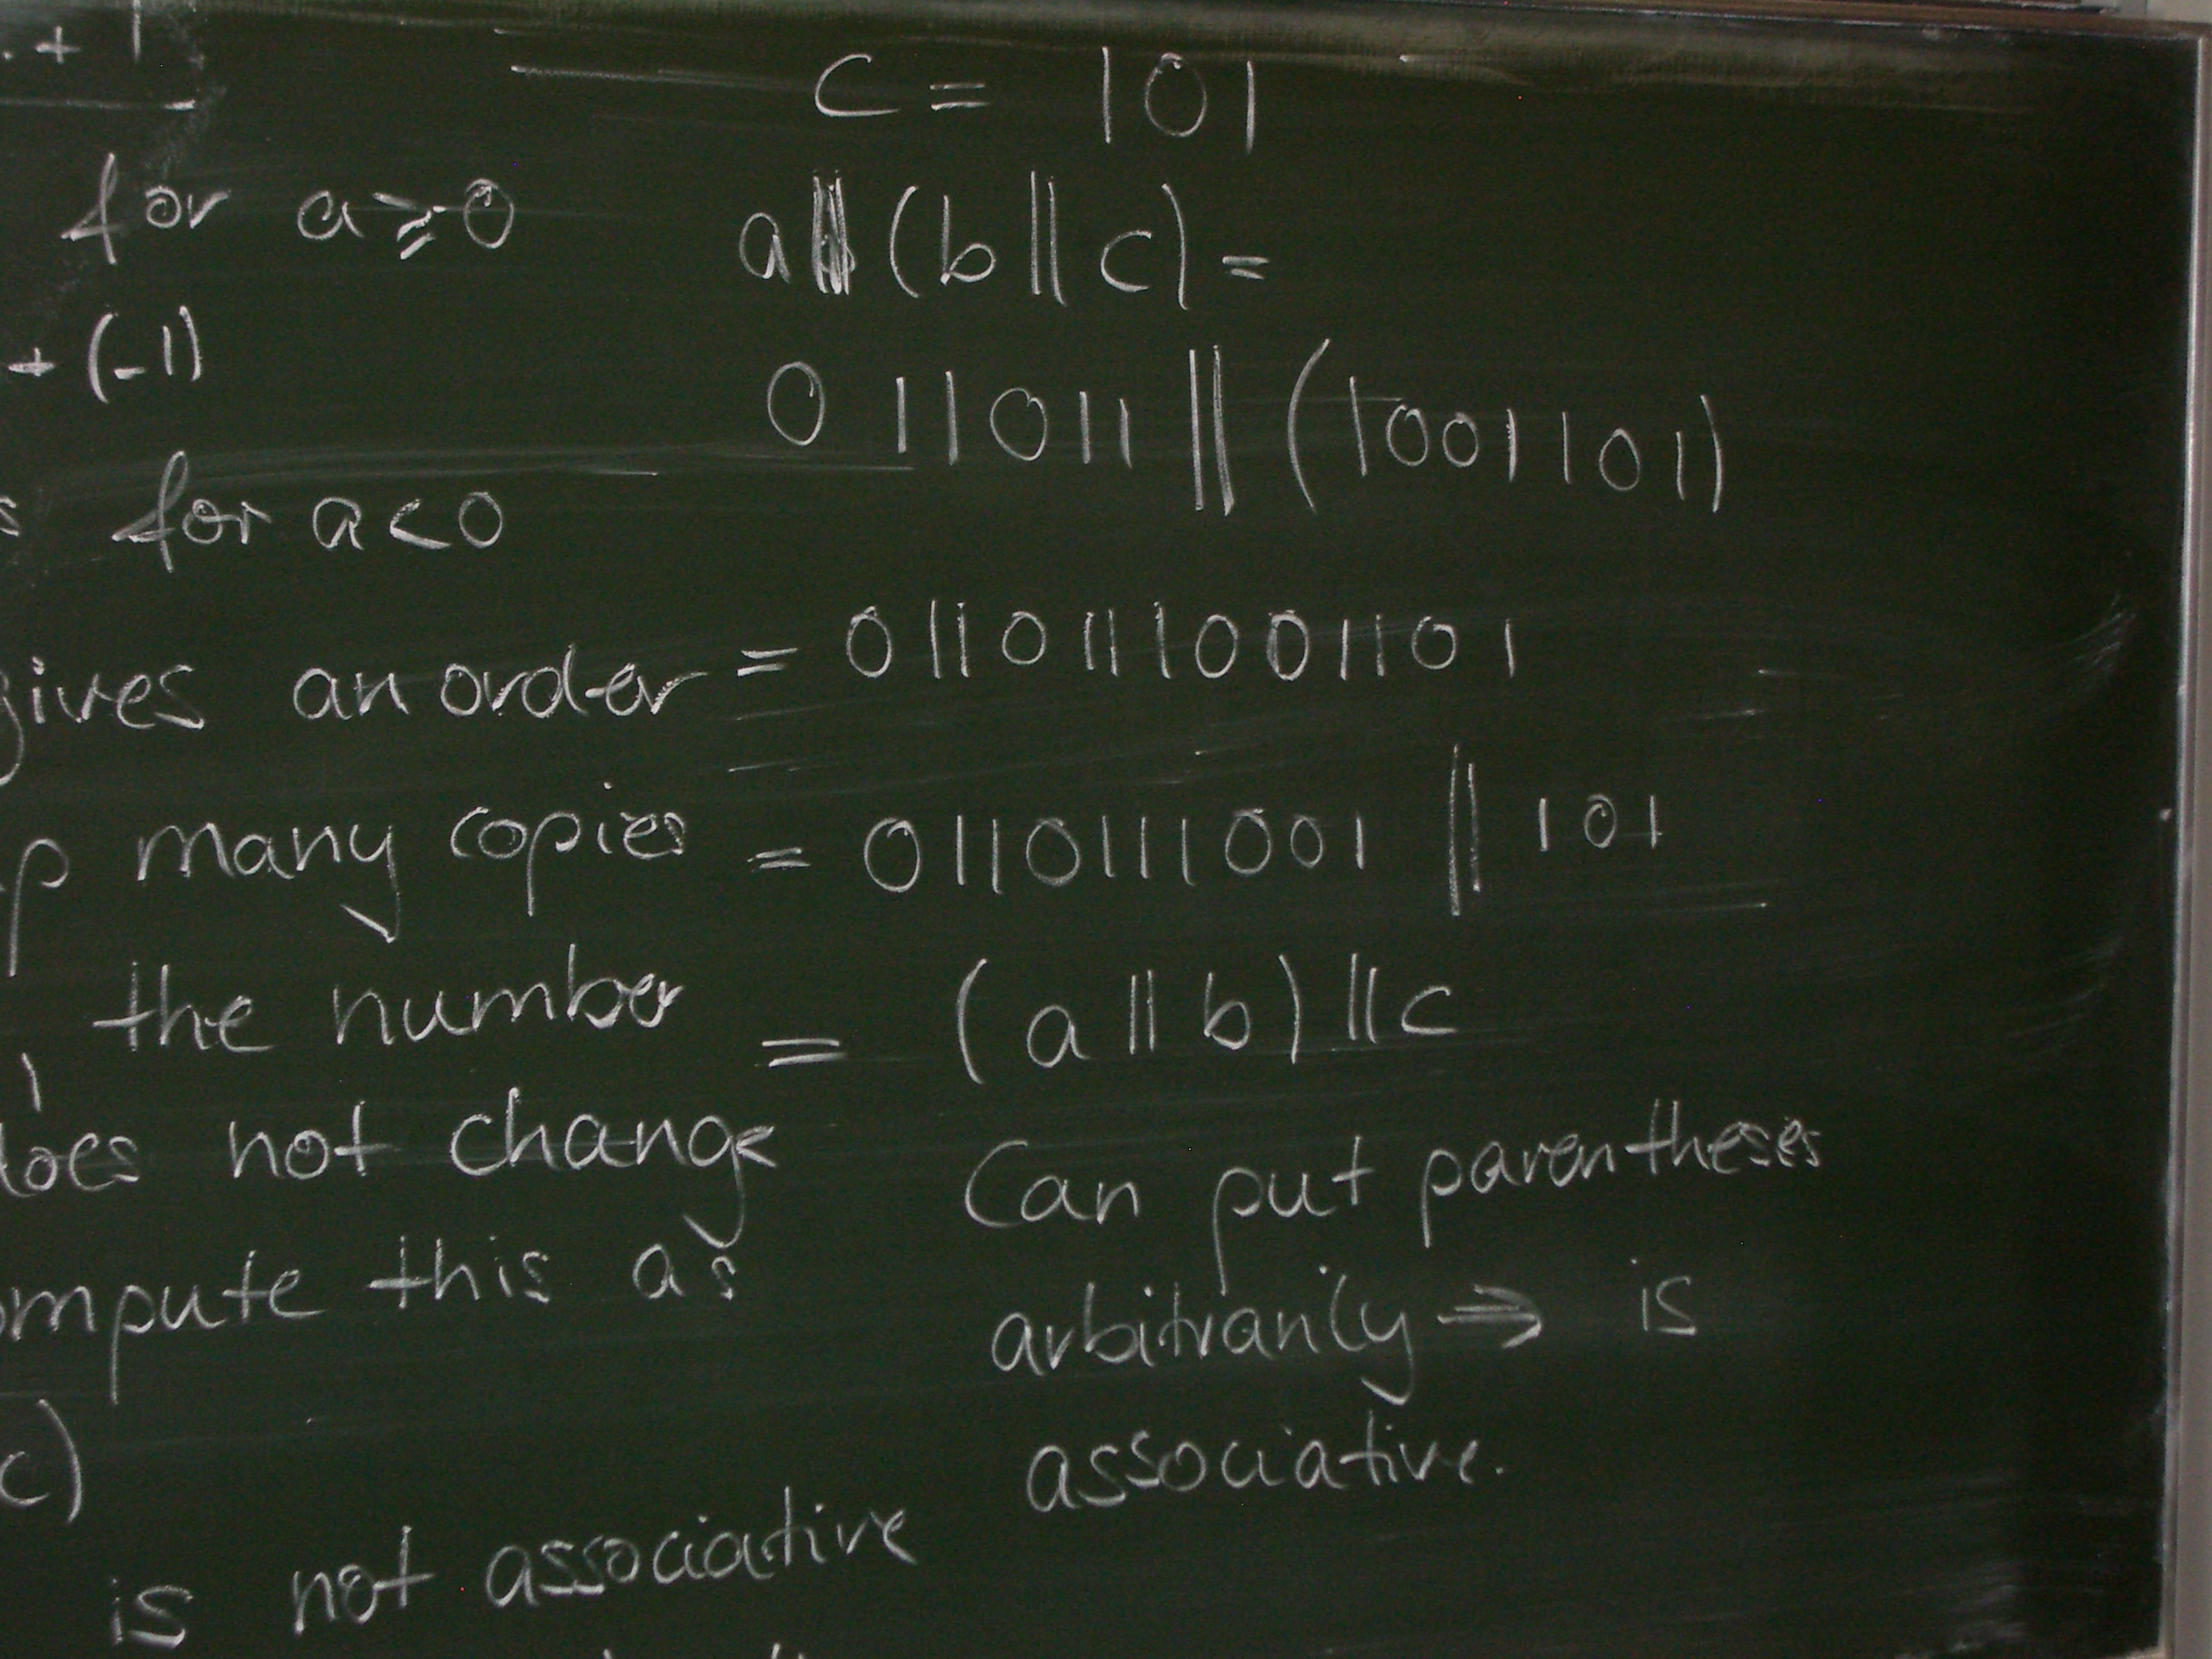 . + 1
for a ≥ 0
+ (-1)
for a < 0
gives an order
many copies
the number
does not change
compute this as
c)
is not associative
c = 101
a || (b || c) =
011011 || (1001101)
= 0110111001101
= 0110111001 || 101
= (a || b) || c
Can put parentheses
arbitrarily ⇒ is
associative.